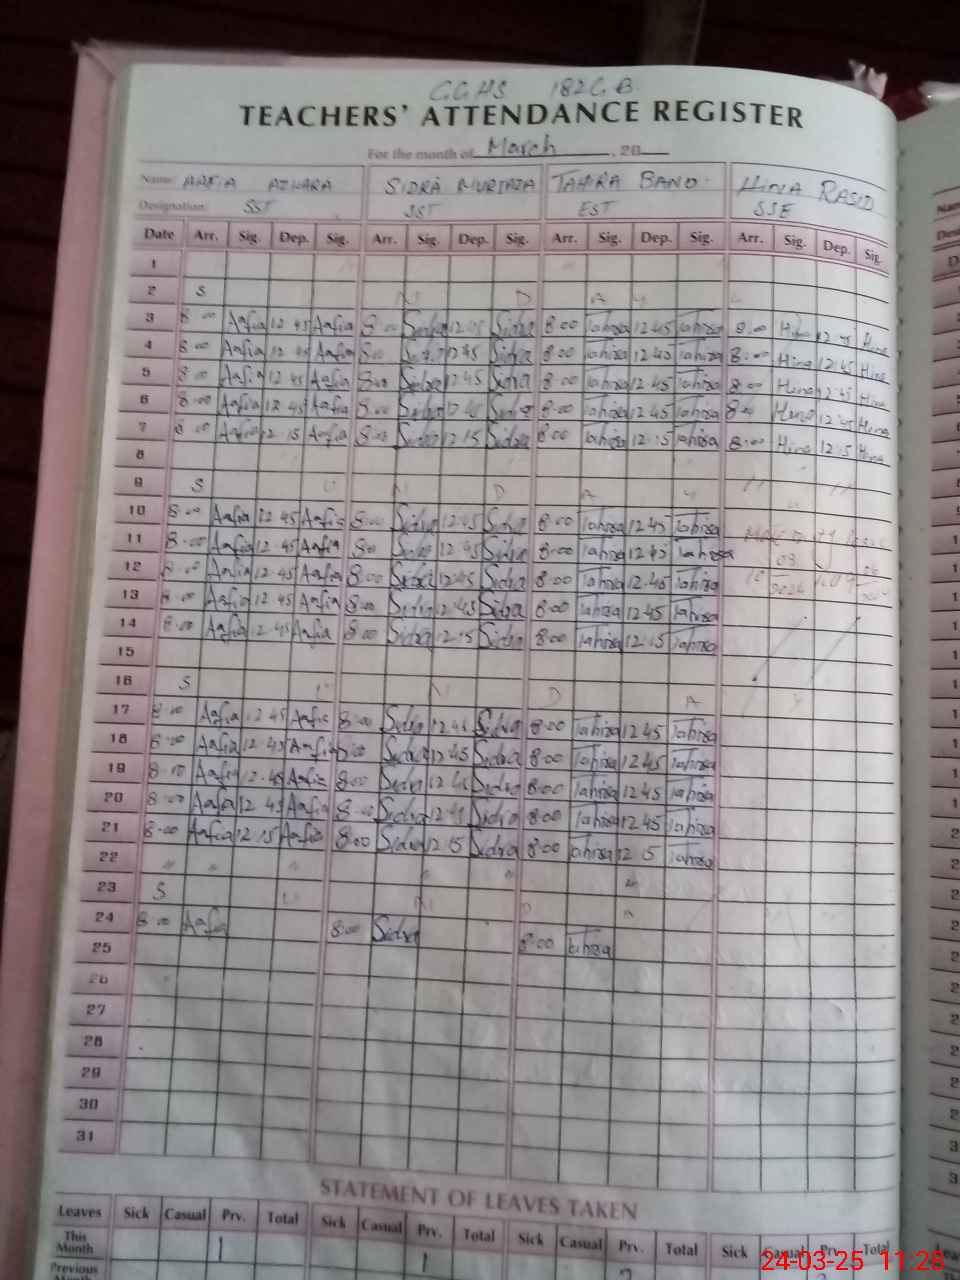 GGHS 182 G.B.
TEACHERS' ATTENDANCE REGISTER
For the month of March, 20
Name: AAFIA SIDRA MURTAZA TAHIRA BANO HINA RASID
Designation: SST SST EST SSE
Date Arr. Sig. Dep. Sig. Arr. Sig. Dep. Sig. Arr. Sig. Dep. Sig. Arr. Sig. Dep. Sig.
1
2 S U N D A Y
3 8:00 Aafia 12:45 Aafia 8:00 Sidra 12:45 Sidra 8:00 Tahira 12:45 Tahira 8:00 Hina 12:45 Hina
4 8:00 Aafia 12:45 Aafia 8:00 Sidra 12:45 Sidra 8:00 Tahira 12:45 Tahira 8:00 Hina 12:45 Hina
5 8:00 Aafia 12:45 Aafia 8:00 Sidra 12:45 Sidra 8:00 Tahira 12:45 Tahira 8:00 Hina 12:45 Hina
6 8:00 Aafia 12:45 Aafia 8:00 Sidra 12:45 Sidra 8:00 Tahira 12:45 Tahira 8:00 Hina 12:45 Hina
7 8:00 Aafia 12:15 Aafia 8:00 Sidra 12:15 Sidra 8:00 Tahira 12:15 Tahira 8:00 Hina 12:15 Hina
8
9 S U N D A Y
10 8:00 Aafia 12:45 Aafia 8:00 Sidra 12:45 Sidra 8:00 Tahira 12:45 Tahira
11 8:00 Aafia 12:45 Aafia 8:00 Sidra 12:45 Sidra 8:00 Tahira 12:45 Tahira
12 8:00 Aafia 12:45 Aafia 8:00 Sidra 12:45 Sidra 8:00 Tahira 12:45 Tahira
13 8:00 Aafia 12:45 Aafia 8:00 Sidra 12:45 Sidra 8:00 Tahira 12:45 Tahira
14 8:00 Aafia 12:45 Aafia 8:00 Sidra 12:15 Sidra 8:00 Tahira 12:15 Tahira
15
16 S U N D A Y
17 8:00 Aafia 12:45 Aafia 8:00 Sidra 12:45 Sidra 8:00 Tahira 12:45 Tahira
18 8:00 Aafia 12:45 Aafia 8:00 Sidra 12:45 Sidra 8:00 Tahira 12:45 Tahira
19 8:00 Aafia 12:45 Aafia 8:00 Sidra 12:45 Sidra 8:00 Tahira 12:45 Tahira
20 8:00 Aafia 12:45 Aafia 8:00 Sidra 12:45 Sidra 8:00 Tahira 12:45 Tahira
21 8:00 Aafia 12:15 Aafia 8:00 Sidra 12:15 Sidra 8:00 Tahira 12:15 Tahira
22
23 S U N D A
24 8:00 Aafia 8:00 Sidra 8:00 Tahira
25
26
27
28
29
30
31
STATEMENT OF LEAVES TAKEN
Leaves Sick Casual Prv. Total Sick Casual Prv. Total Sick Casual Prv. Total Sick Casual Prv. Total
This Month 1 1
Previous
24-03-25 11:28